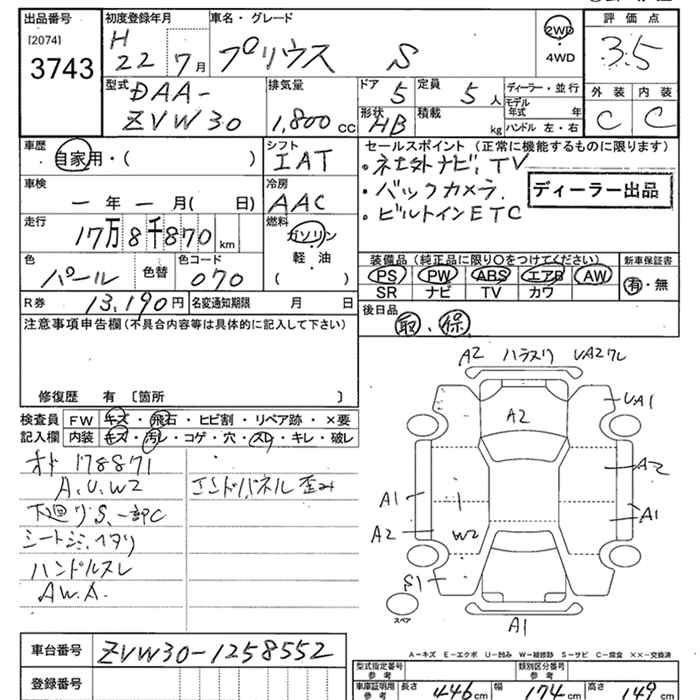 出品番号
[2074]
3743
初度登録年月
H 22 7月
車名・グレード
プリウス S
2WD
・
4WD
評価点
3.5
型式
DAA-
ZVW30
排気量
1,800 cc
ドア 5
定員 5人
形状 HB
積載 kg
ディーラー・並行
モデル年式 年
ハンドル 左・右
外装 C
内装 C
車歴
自家用・( )
シフト
IAT
セールスポイント (正常に機能するものに限ります)
・ネ土外ナビ, TV
・バックカメラ
・ビルトインETC
ディーラー出品
車検
－年－月( 日)
冷房
AAC
走行
17万8千870 km
燃料
ガソリン
軽・油
( )
色
パール
色替
色コード
070
装備品 (純正品に限り○をつけてください)
PS PW ABS エアB AW
SR ナビ TV カワ
新車保証書
有・無
R券 13,190円
名変通知期限 月 日
後日品
取、保
注意事項申告欄(不具合内容等は具体的に記入して下さい)
修復歴 有 〔箇所 〕
検査員記入欄
FW キズ・飛石・ヒビ割・リペア跡・×要
内装 キズ・汚レ・コゲ・穴・スレ・キレ・破レ
オド 178871
A.U.W2
エンドパネル歪み
下廻りS、一部C
シートシミ、ヘタリ
ハンドルスレ
AW.A.
A2 ハラスリ UA2ワレ
UA1
A2
A2
A1
A1
A2
W2
S1
A1
スペア
A－キズ E－エクボ U－凹み W－補修跡 S－サビ C－腐食 ××－交換済
車台番号
ZVW30-1258552
登録番号
型式指定番号 参考
類別区分番号 参考
車庫証明用 参考
長さ 446cm
幅 174cm
高さ 149cm